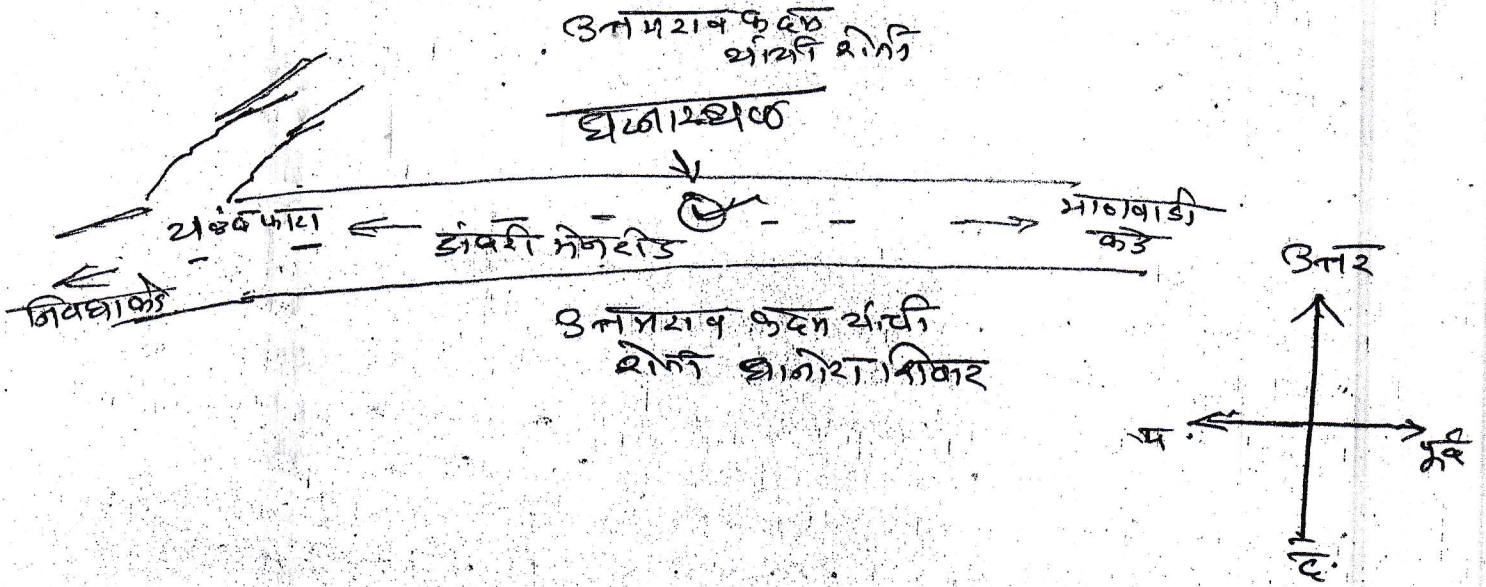 उत्तमराव कदम
यांची शेती
घटनास्थळ
फाटा
डांबरी मेनरोड
माठावाडी
कडे
निवघाकडे
उत्तमराव कदम यांची
शेती धानोरा शिवार
उत्तर
प.
पूर्व
द.